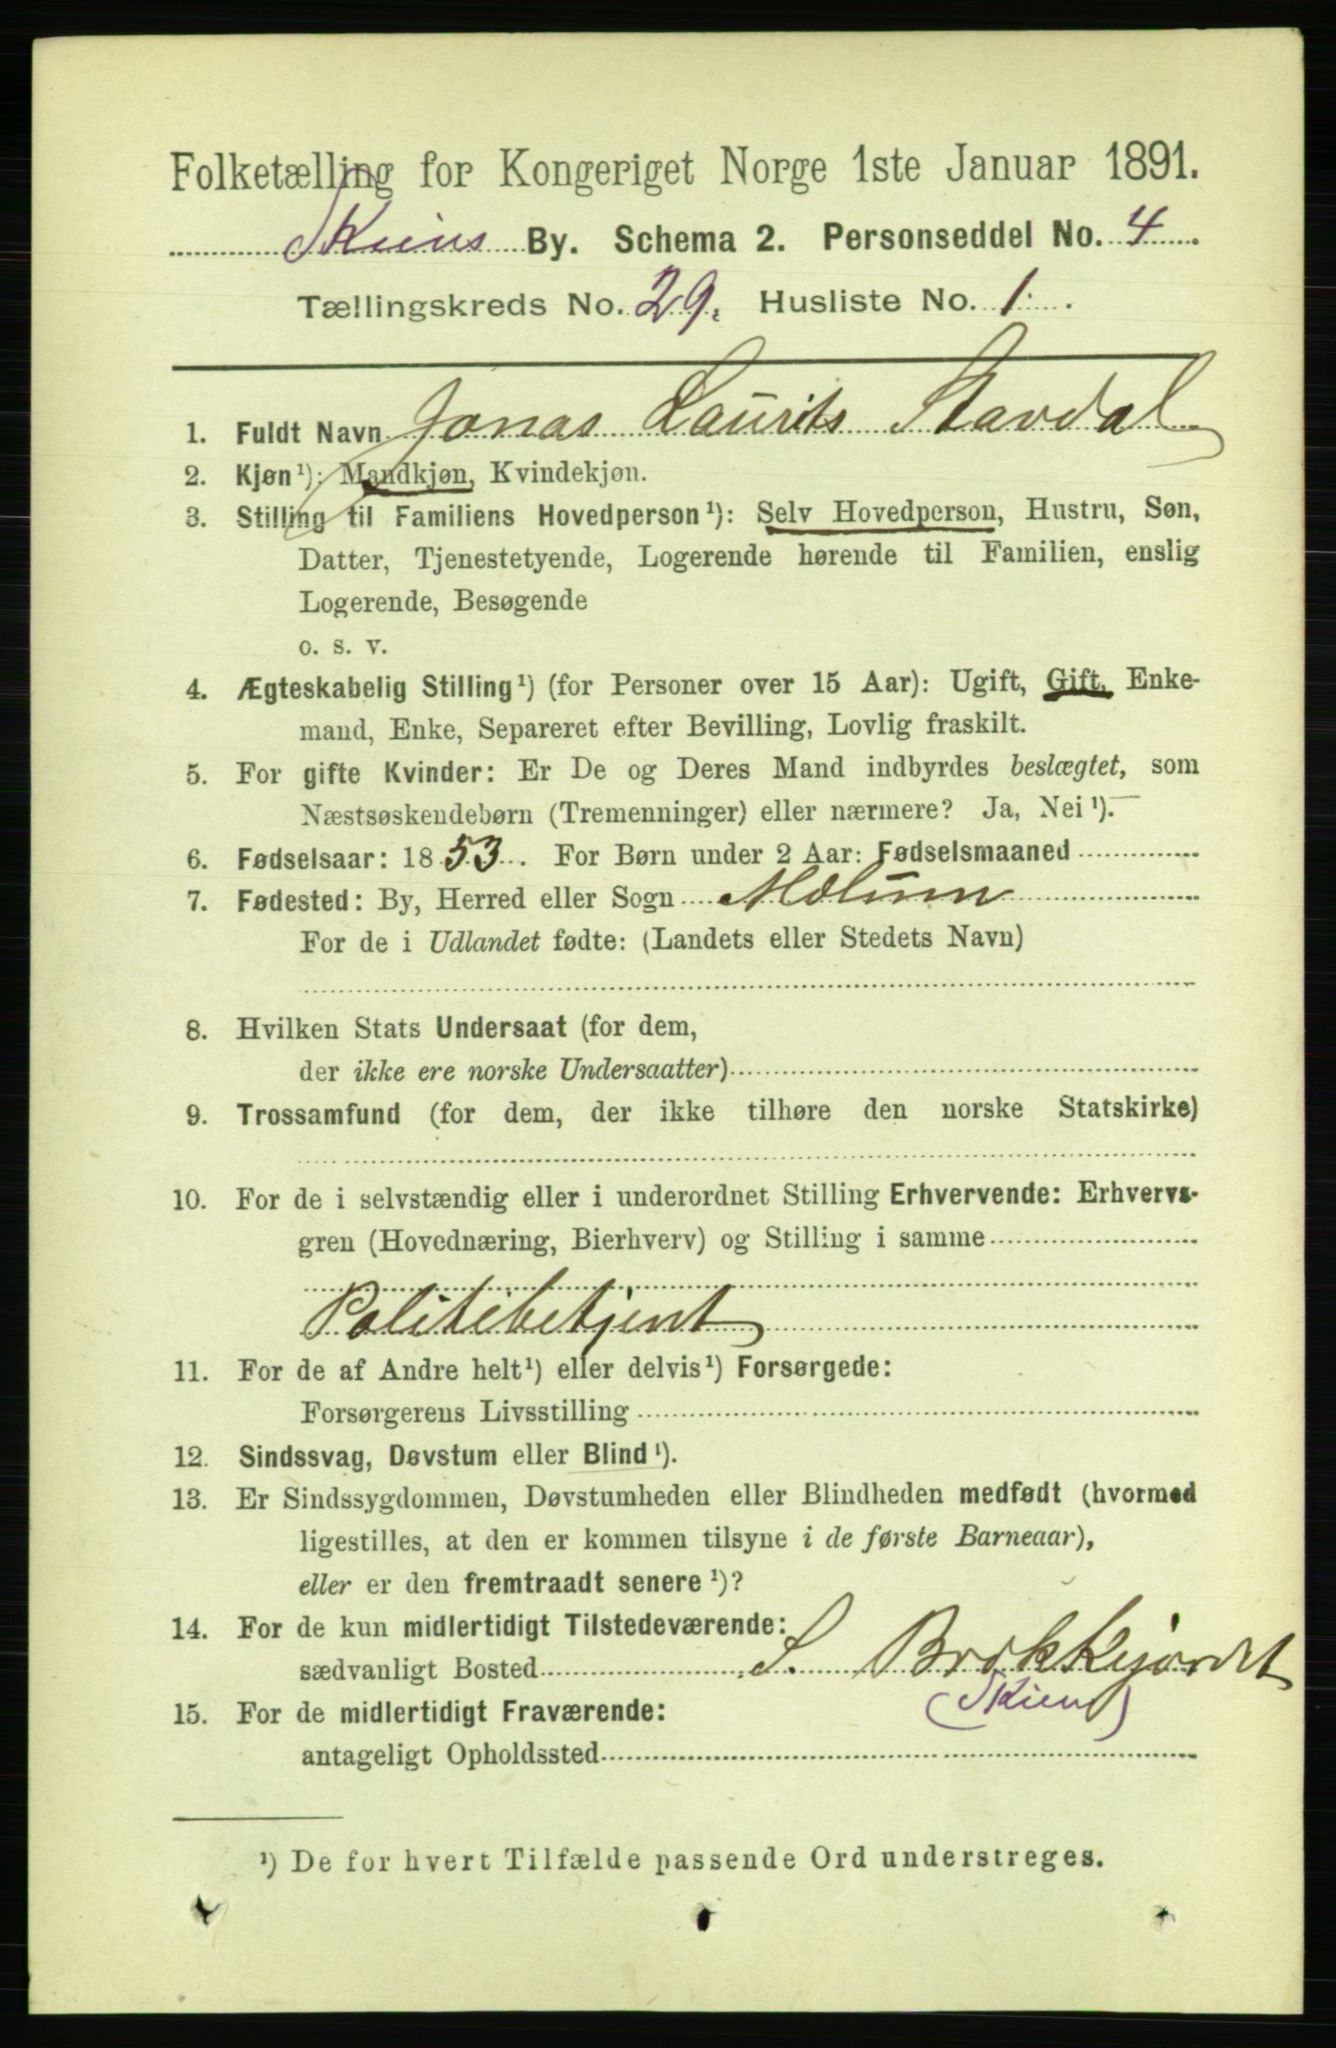 Folketælling for Kongeriget Norge 1ste Januar 1891.
Skiens By. Schema 2. Personseddel No. 4
Tællingskreds No. 29. Husliste No. 1.
1. Fuldt Navn Jonas Laurits Stavdal
2. Kjøn¹): Mandkjøn, Kvindekjøn.
3. Stilling til Familiens Hovedperson¹): Selv Hovedperson, Hustru, Søn,
Datter, Tjenestetyende, Logerende hørende til Familien, enslig
Logerende, Besøgende
o. s. v.
4. Ægteskabelig Stilling¹) (for Personer over 15 Aar): Ugift, Gift, Enke-
mand, Enke, Separeret efter Bevilling, Lovlig fraskilt.
5. For gifte Kvinder: Er De og Deres Mand indbyrdes beslægtet, som
Næstsøskendebørn (Tremenninger) eller nærmere? Ja, Nei¹).
6. Fødselsaar: 1853. For Børn under 2 Aar: Fødselsmaaned
7. Fødested: By, Herred eller Sogn Mælum
For de i Udlandet fødte: (Landets eller Stedets Navn)
8. Hvilken Stats Undersaat (for dem,
der ikke ere norske Undersaatter)
9. Trossamfund (for dem, der ikke tilhøre den norske Statskirke)
10. For de i selvstændig eller i underordnet Stilling Erhvervende: Erhvervs-
gren (Hovednæring, Bierhverv) og Stilling i samme
Politibetjent
11. For de af Andre helt¹) eller delvis¹) Forsørgede:
Forsørgerens Livsstilling
12. Sindssvag, Døvstum eller Blind¹).
13. Er Sindssygdommen, Døvstumheden eller Blindheden medfødt (hvormed
ligestilles, at den er kommen tilsyne i de første Barneaar),
eller er den fremtraadt senere¹)?
14. For de kun midlertidigt Tilstedeværende:
sædvanligt Bosted S. Brækkjordet
(Skien)
15. For de midlertidigt Fraværende:
antageligt Opholdssted
¹) De for hvert Tilfælde passende Ord understreges.